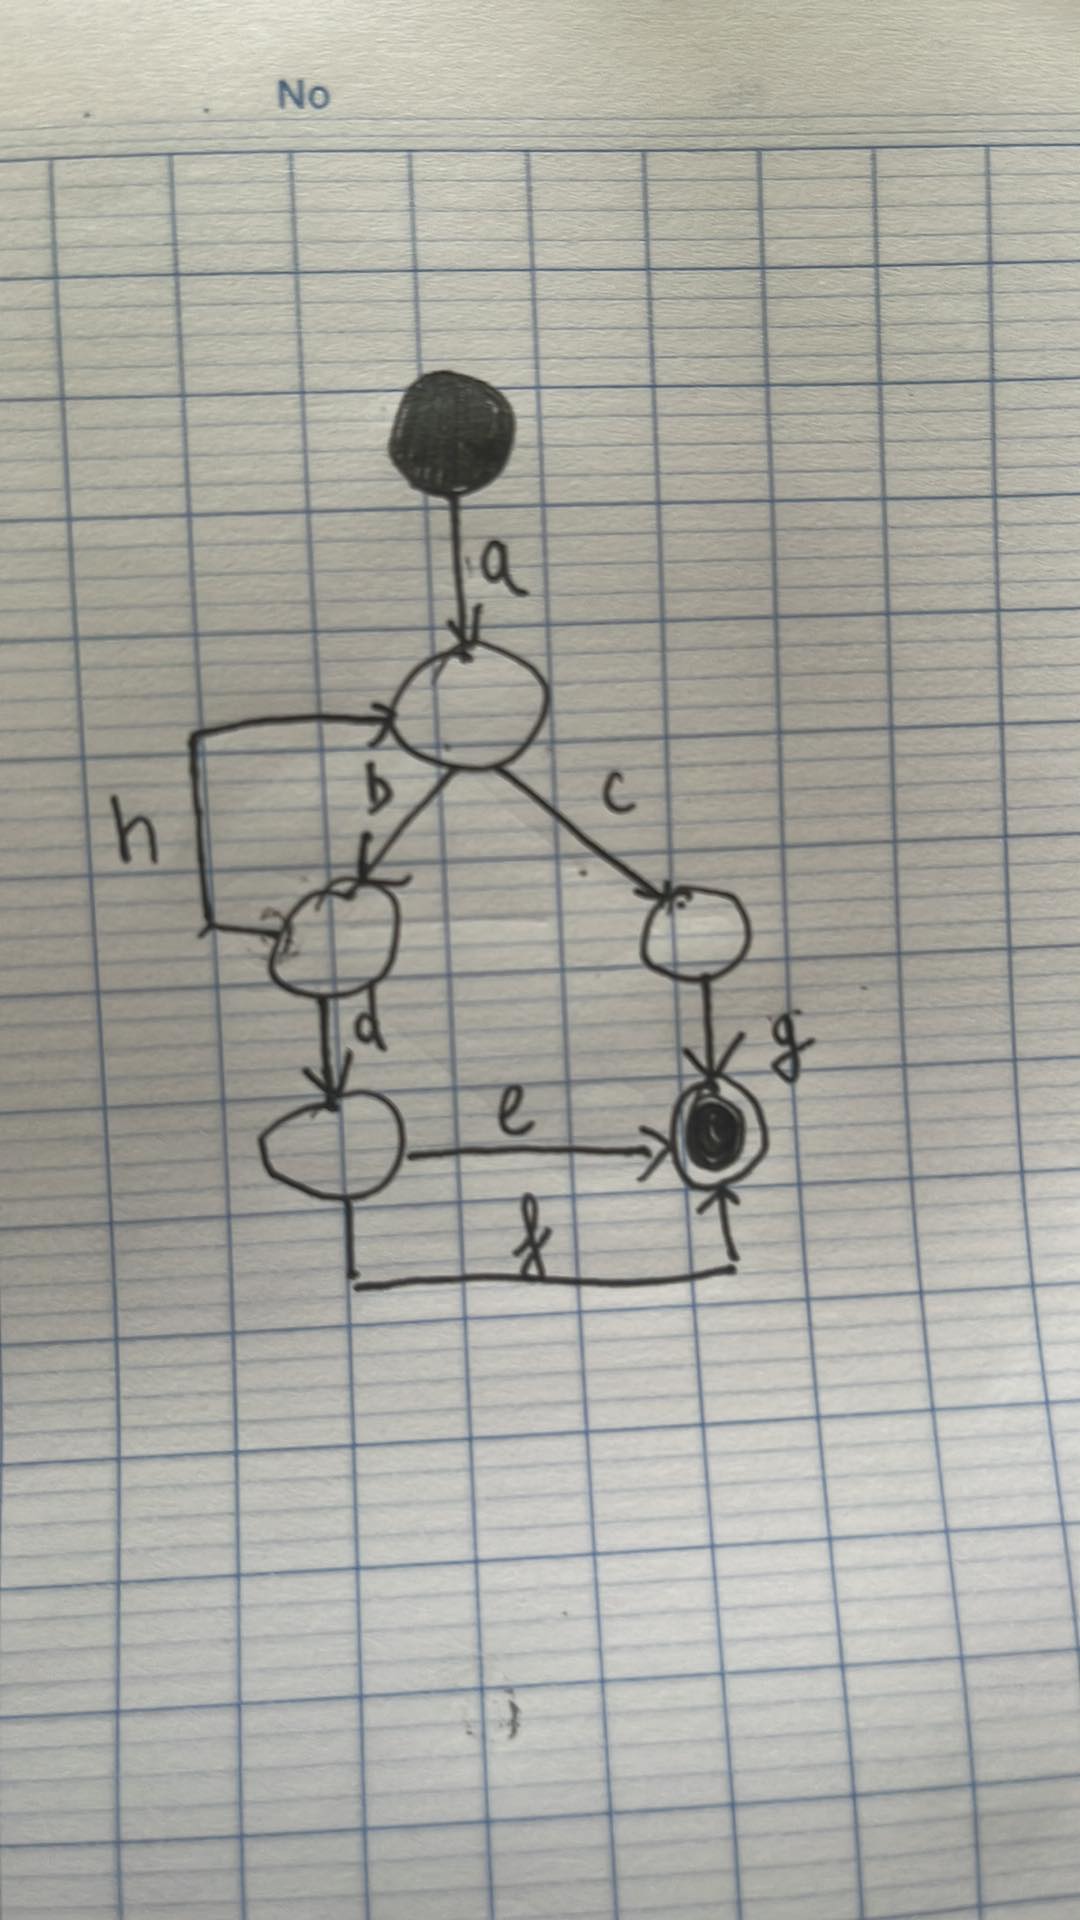 No
a
b
c
h
d
g
e
f